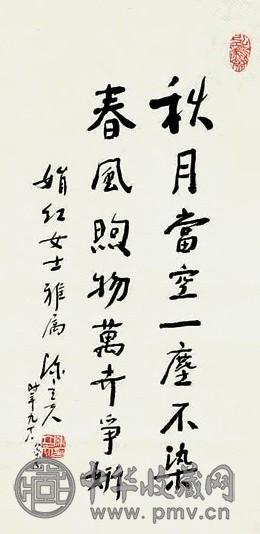 秋月當空一塵不染
春風煦物萬卉爭妍
娟红女士雅属 陳立夫
时年九十八
中华收藏网
www.pmv.cn